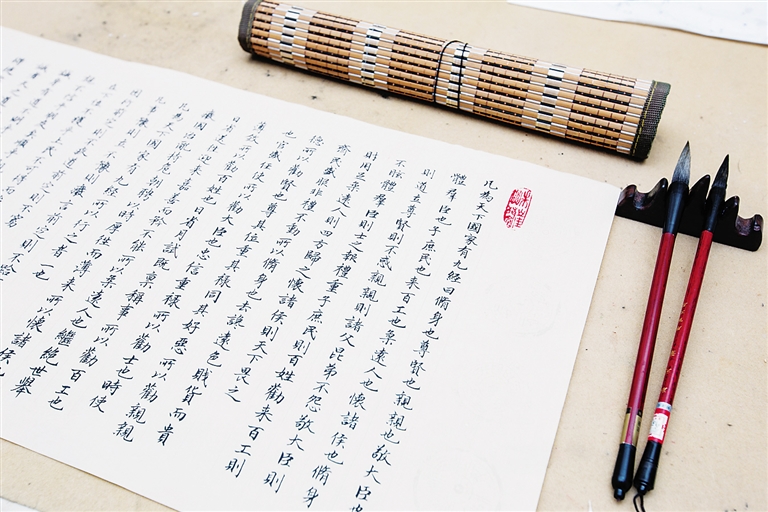 凡為天下國家有九經曰脩身也尊賢也親親也敬大臣也
體羣臣也子庶民也来百工也柔遠人也懷諸侯也脩身
則道立尊賢則不惑親親則諸父昆弟不怨敬大臣則
不眩體羣臣則士之報禮重子庶民則百姓勸来百工則
財用足柔遠人則四方歸之懷諸侯則天下畏之
齊明盛服非禮不動所以脩身也去讒遠色賤貨而貴
德所以勸賢也尊其位重其祿同其好惡所以勸親親
也官盛任使所以勸大臣也忠信重祿所以勸士也時使
薄斂所以勸百姓也日省月試既稟稱事所以勸百工也
送往迎来嘉善而矜不能所以柔遠人也繼絕世舉
廢國治亂持危朝聘以時厚往而薄来所以懷諸侯也
凡為天下國家有九經所以行之者一也
凡事豫則立不豫則廢言前定則不跲